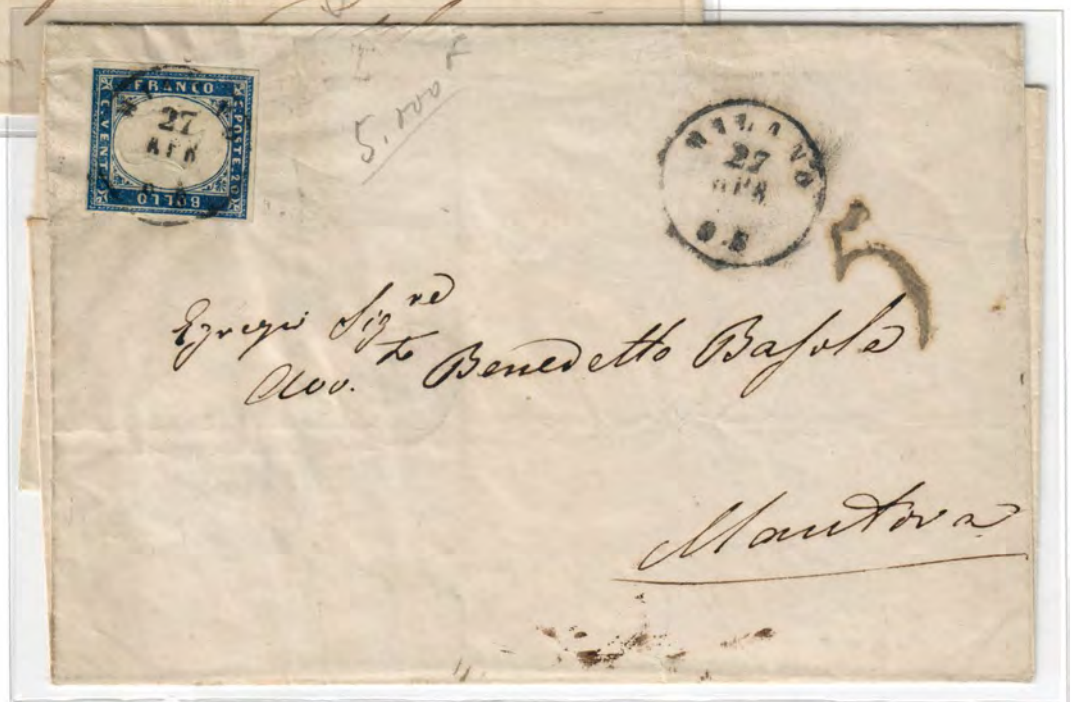 FRANCO
C. POSTE. 20
BOLLO
C. VENTI
27
APR
5.000
MILANO
27
APR
5
Egregio Sig.re
Avv.to Benedetto Basola
Mantova